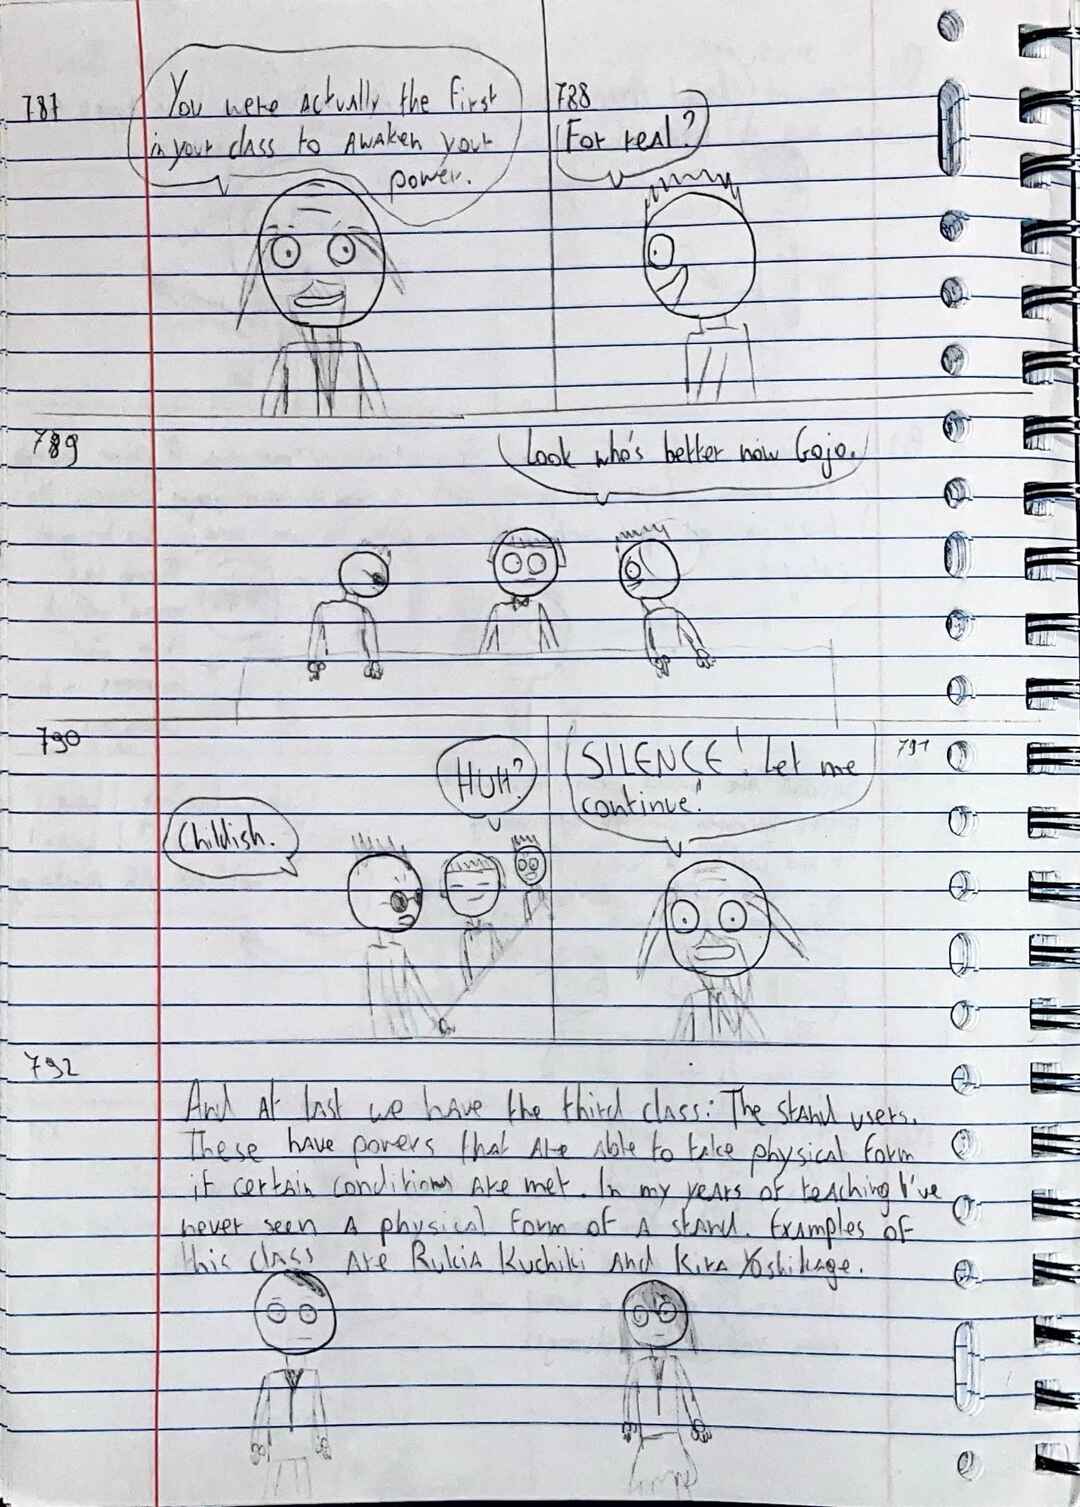 787
You were actually the first
in your class to awaken your
power.
788
For real?
789
Look who's better now Gojo.
790
Childish.
HUH?
791
SILENCE! Let me
continue!
792
And at last we have the third class: The stand users.
These have powers that are able to take physical form
if certain conditions are met. In my years of teaching I've
never seen a physical form of a stand. Examples of
this class are Rukia Kuchiki and Kira Yoshikage.